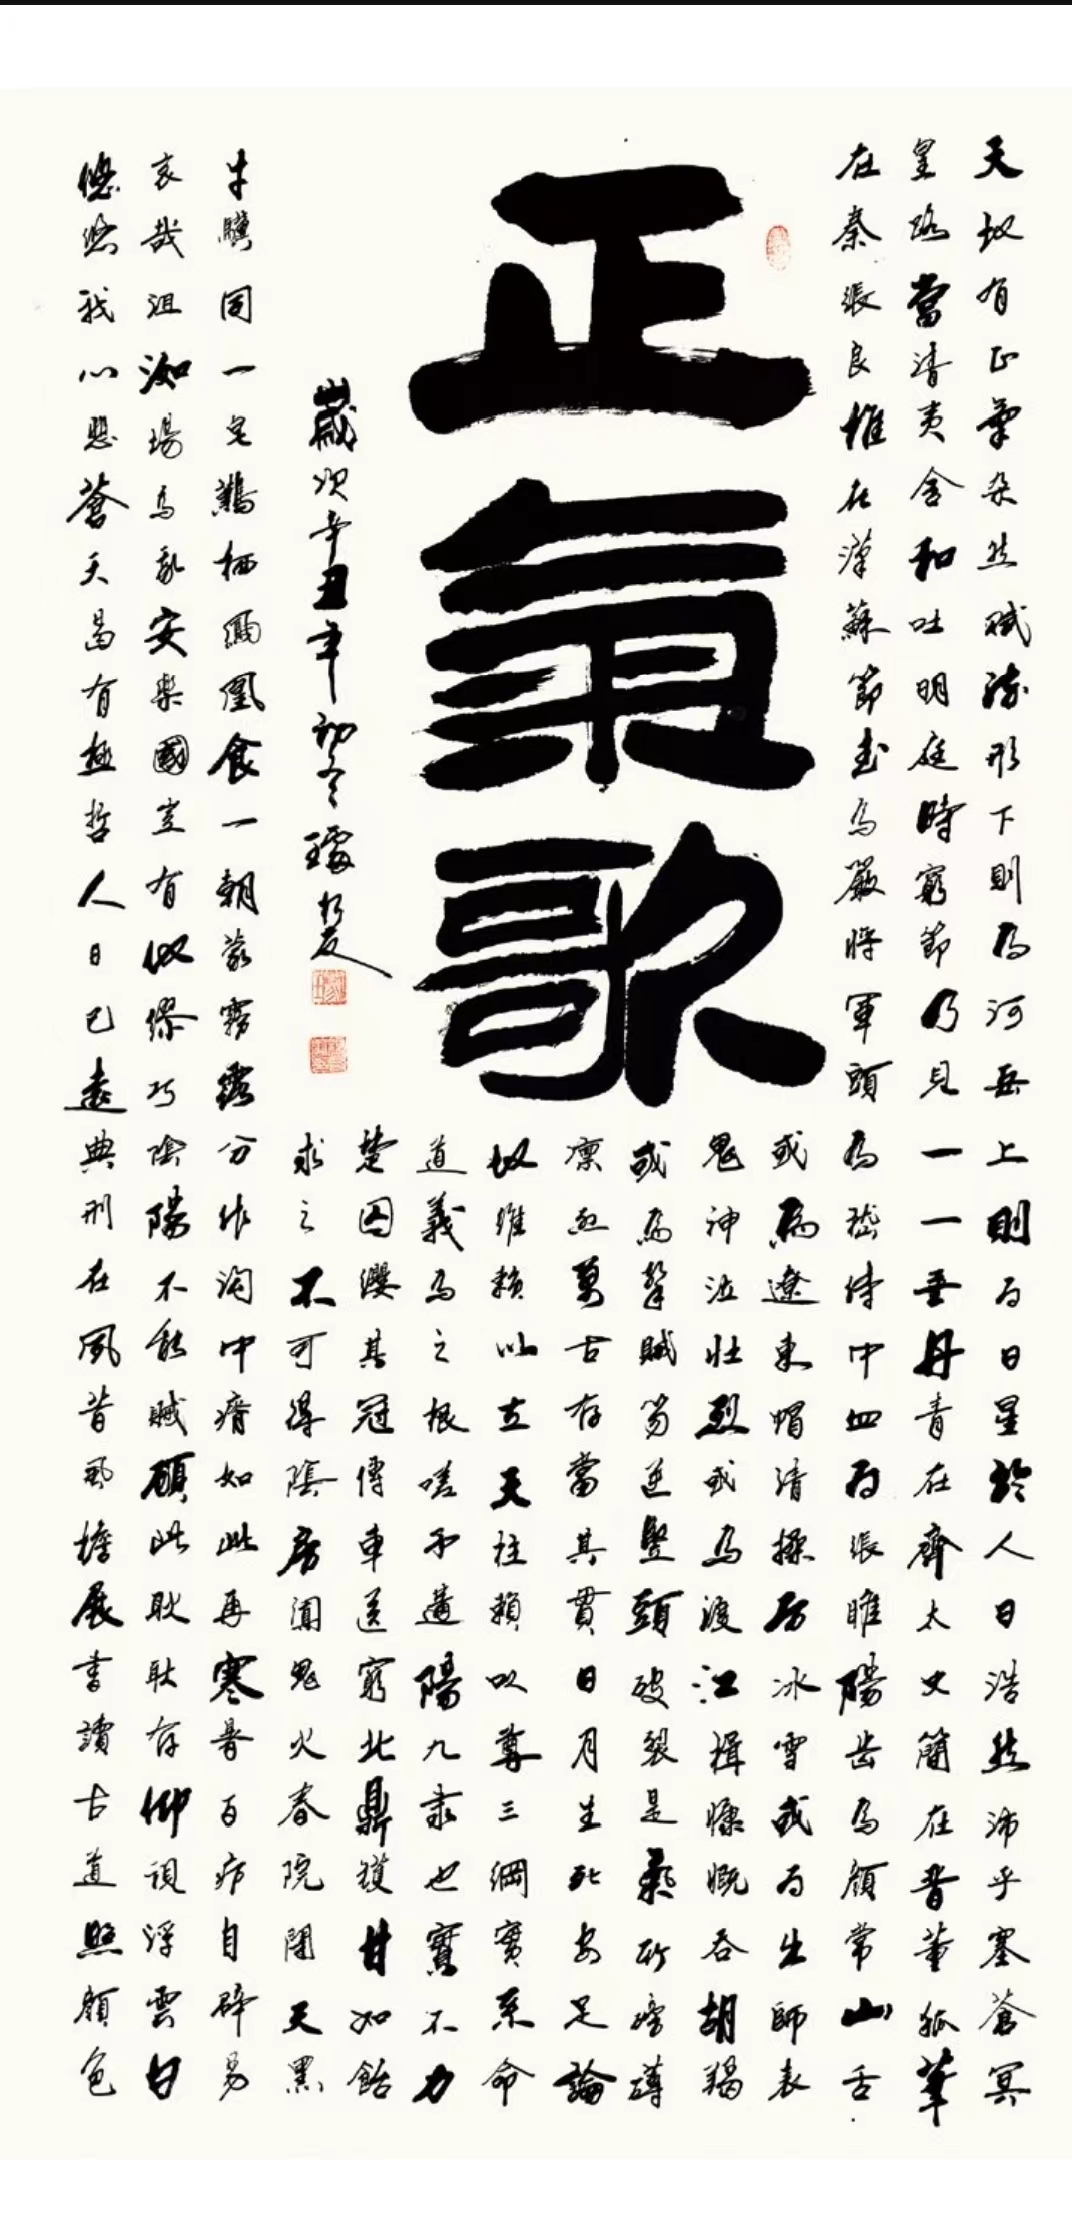 天地有正氣雜然賦流形下則為河岳上則為日星於人曰浩然沛乎塞蒼冥
皇路當清夷含和吐明庭時窮節乃見一一垂丹青在齊太史簡在晉董狐筆
在秦張良椎在漢蘇節武為嚴將軍頭為嵇侍中血為張睢陽齒為顏常山舌
正氣歌
或為遼東帽清操厲冰雪或為出師表
鬼神泣壯烈或為渡江楫慷慨吞胡羯
或為擊賊笏逆豎頭破裂是氣所磅礴
凜烈萬古存當其貫日月生死安足論
地維賴以立天柱賴以尊三綱實系命
道義為之根嗟予遘陽九隸也實不力
楚囚纓其冠傳車送窮北鼎鑊甘如飴
求之不可得陰房闃鬼火春院閟天黑
牛驥同一皂鷄栖鳳凰食一朝蒙霧露分作溝中瘠如此再寒暑百沴自辟易
哀哉沮洳場為我安樂國豈有他繆巧陰陽不能賊顧此耿耿存仰視浮雲白
悠悠我心悲蒼天曷有極哲人日已遠典刑在夙昔風檐展書讀古道照顏色
歲次辛丑年初冬